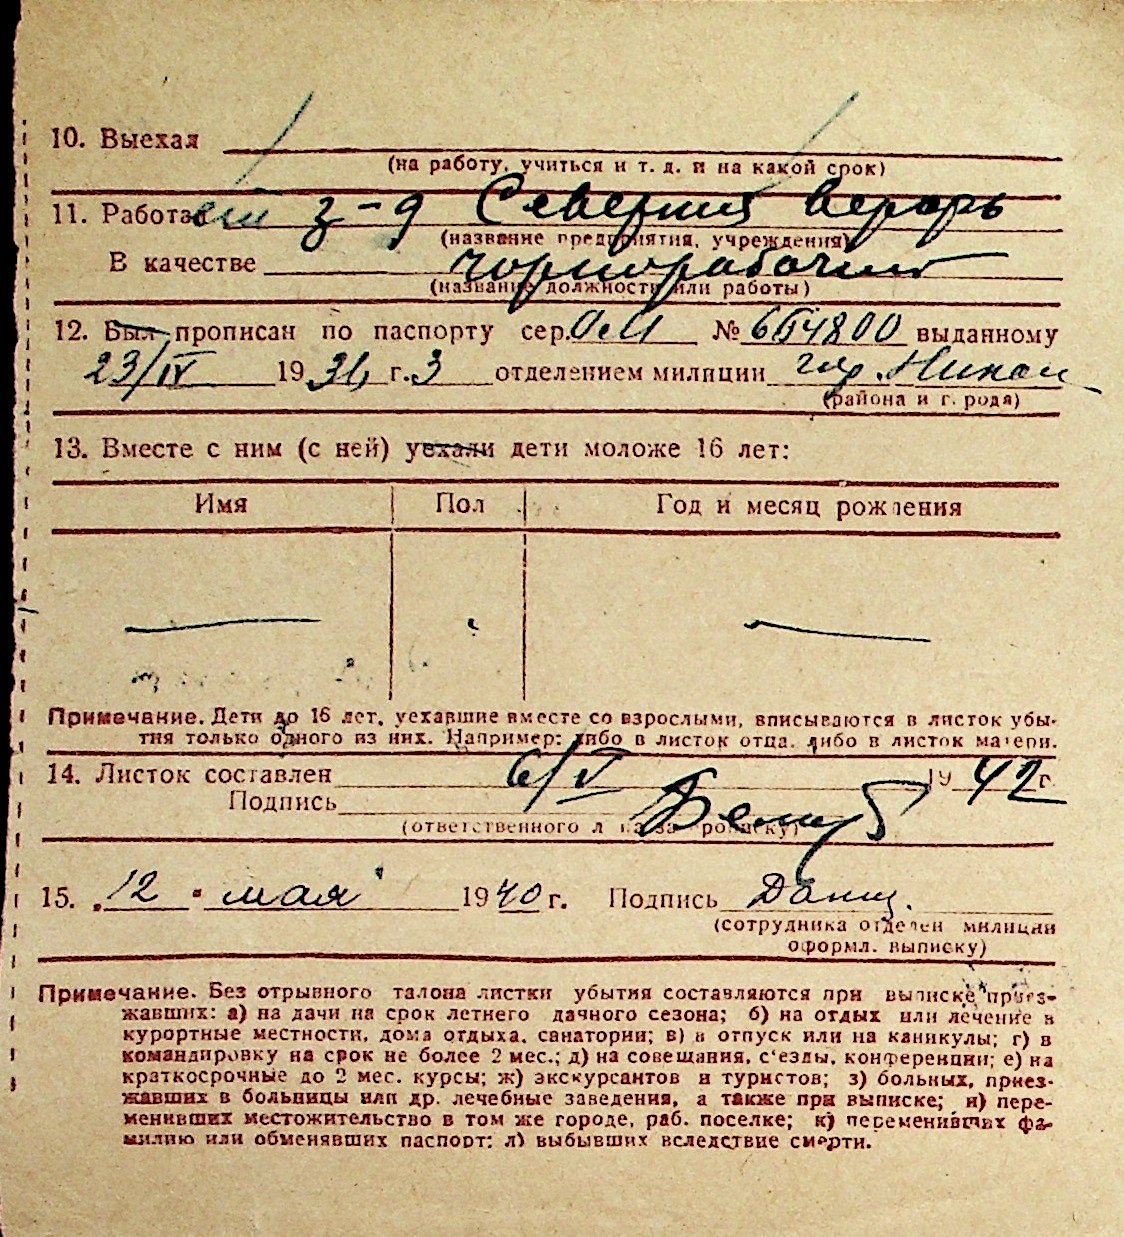 10. Выехал
(на работу, учиться и т. д. и на какой срок)
11. Работает з-д Северный
(название предприятия, учреждения)
В качестве чорнорабочий
(название должности или работы)
12. Был прописан по паспорту сер. № выданному
23/IV 19 г. 3 отделением милиции гор.
(района и г. рода)
13. Вместе с ним (с ней) уехали дети моложе 16 лет:
Имя Пол Год и месяц рождения
Примечание. Дети до 16 лет, уехавшие вместе со взрослыми, вписываются в листок убы-
тия только одного из них. Например: либо в листок отца, либо в листок матери.
14. Листок составлен 6/V 1942 г.
Подпись
(ответственного л за прописку)
15. "12" мая 1940 г. Подпись
(сотрудника отделен милиции
оформл. выписку)
Примечание. Без отрывного талона листки убытия составляются при выписке приез-
жавших: а) на дачи на срок летнего дачного сезона; б) на отдых или лечение в
курортные местности, дома отдыха, санатории; в) в отпуск или на каникулы; г) в
командировку на срок не более 2 мес.; д) на совещания, с'езды, конференции; е) на
краткосрочные до 2 мес. курсы; ж) экскурсантов и туристов; з) больных, приез-
жавших в больницы или др. лечебные заведения, а также при выписке; и) пере-
менивших местожительство в том же городе, раб. поселке; к) переменивших фа-
милию или обменявших паспорт; л) выбывших вследствие смерти.